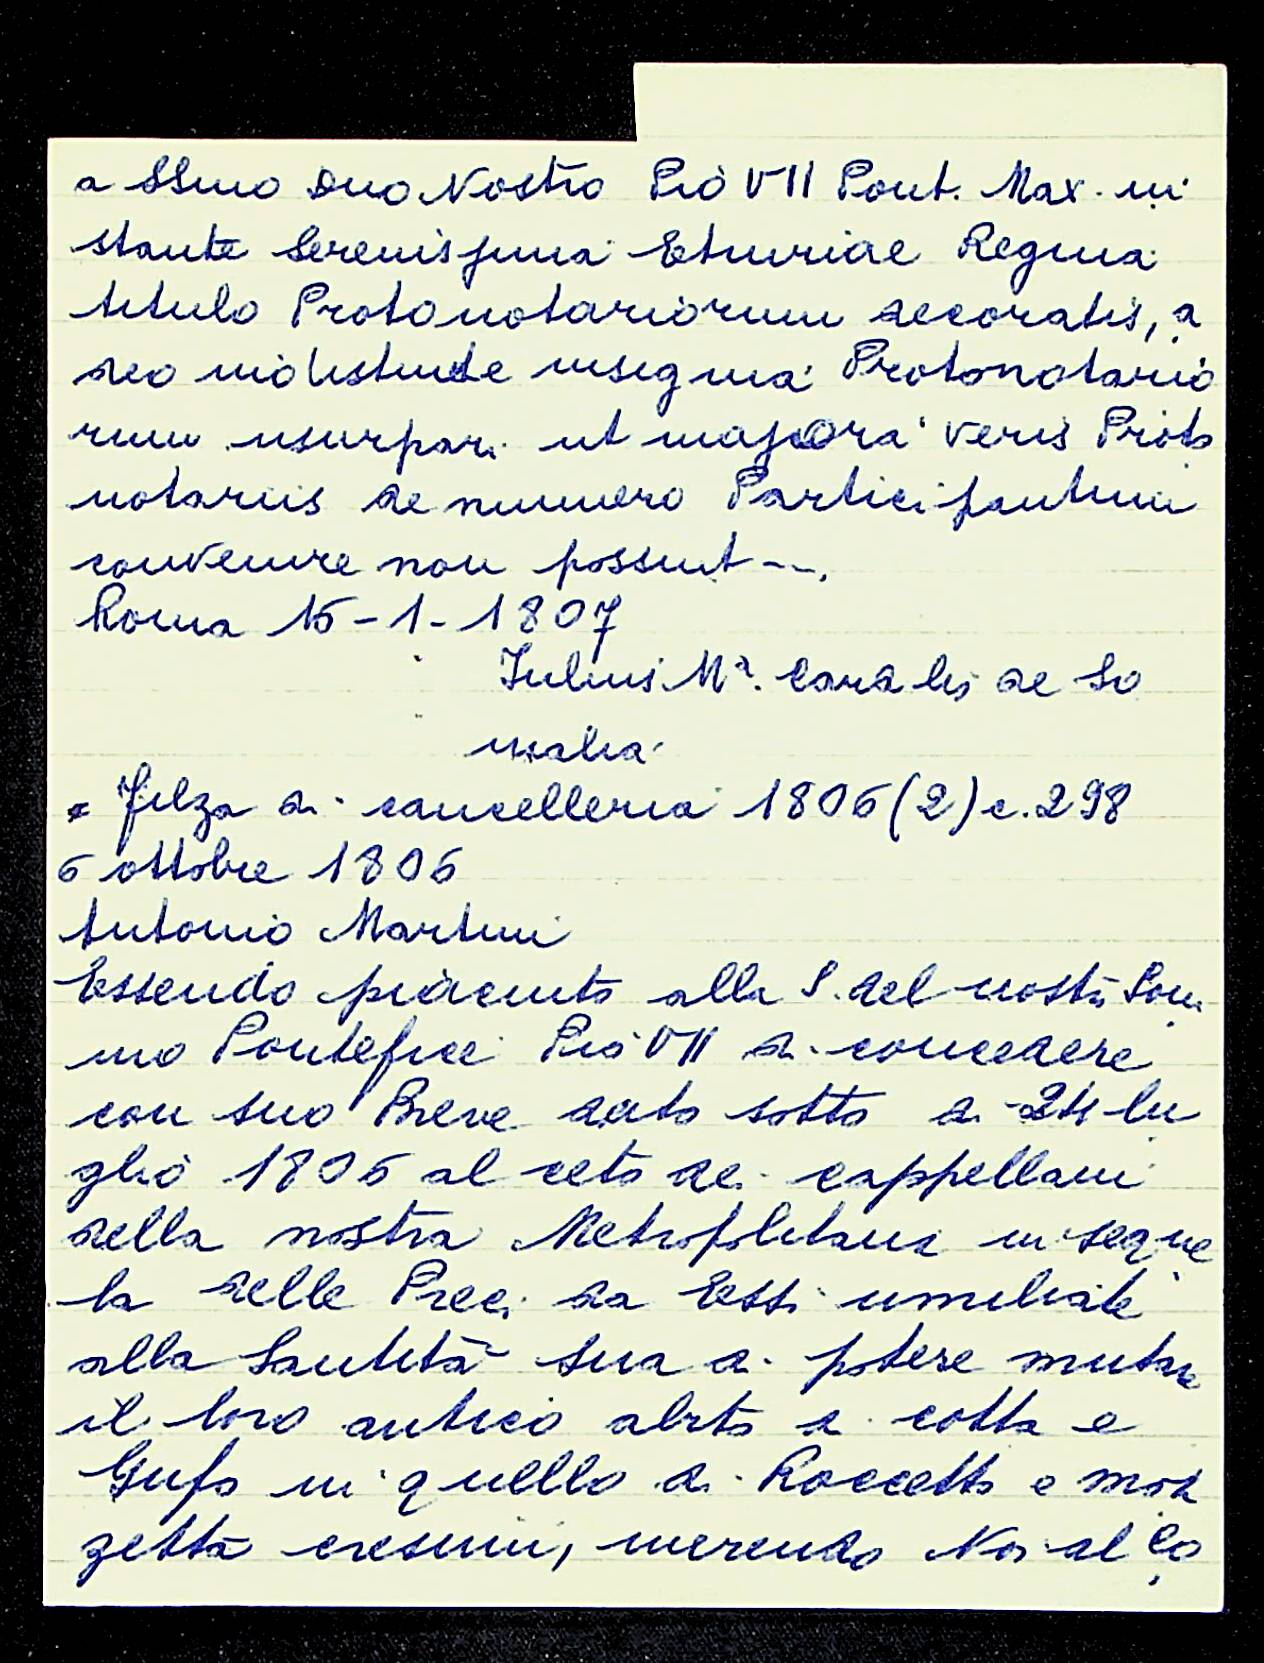 a SSmo Dno Nostro Pio VII Pont. Max. in
stante Serenissima Etruriae Regina
titulo Protonotariorum decoratis, a
deo indistincte insegna Protonotario
rum usurpari ut majora veris Proto
notariis de numero Participantium
convenire non possunt --.
Roma 15-1-1807
Iulius Ma. Cardlis de So
malia
Filza di cancelleria 1806(2)c.298
6 ottobre 1806
Antonio Martini
Essendo piaciuto alla S. del nostro Som
mo Pontefice Pio VII di concedere
con suo Breve dato sotto di 24 lu
glio 1806 al ceto dei cappellani
della nostra Metropolitana in segue
la delle Preci da Essi umiliate
alla Santità Sua di potere mutare
il loro antico abito di cotta e
Gufo in quello di Roccetto e moz
zetta cremisi, inerendo Noi al Co